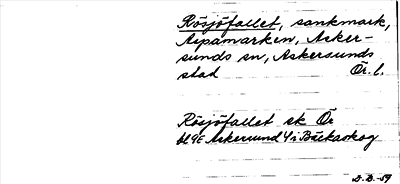 Rösjöfallet, sankmark,
Aspamarken, Asker-
sunds sn, Askersunds
stad Ör. l.
Rösjöfallet sk Ör
bl 9E Askersund 4 i Bäckaskog
D.D.-59